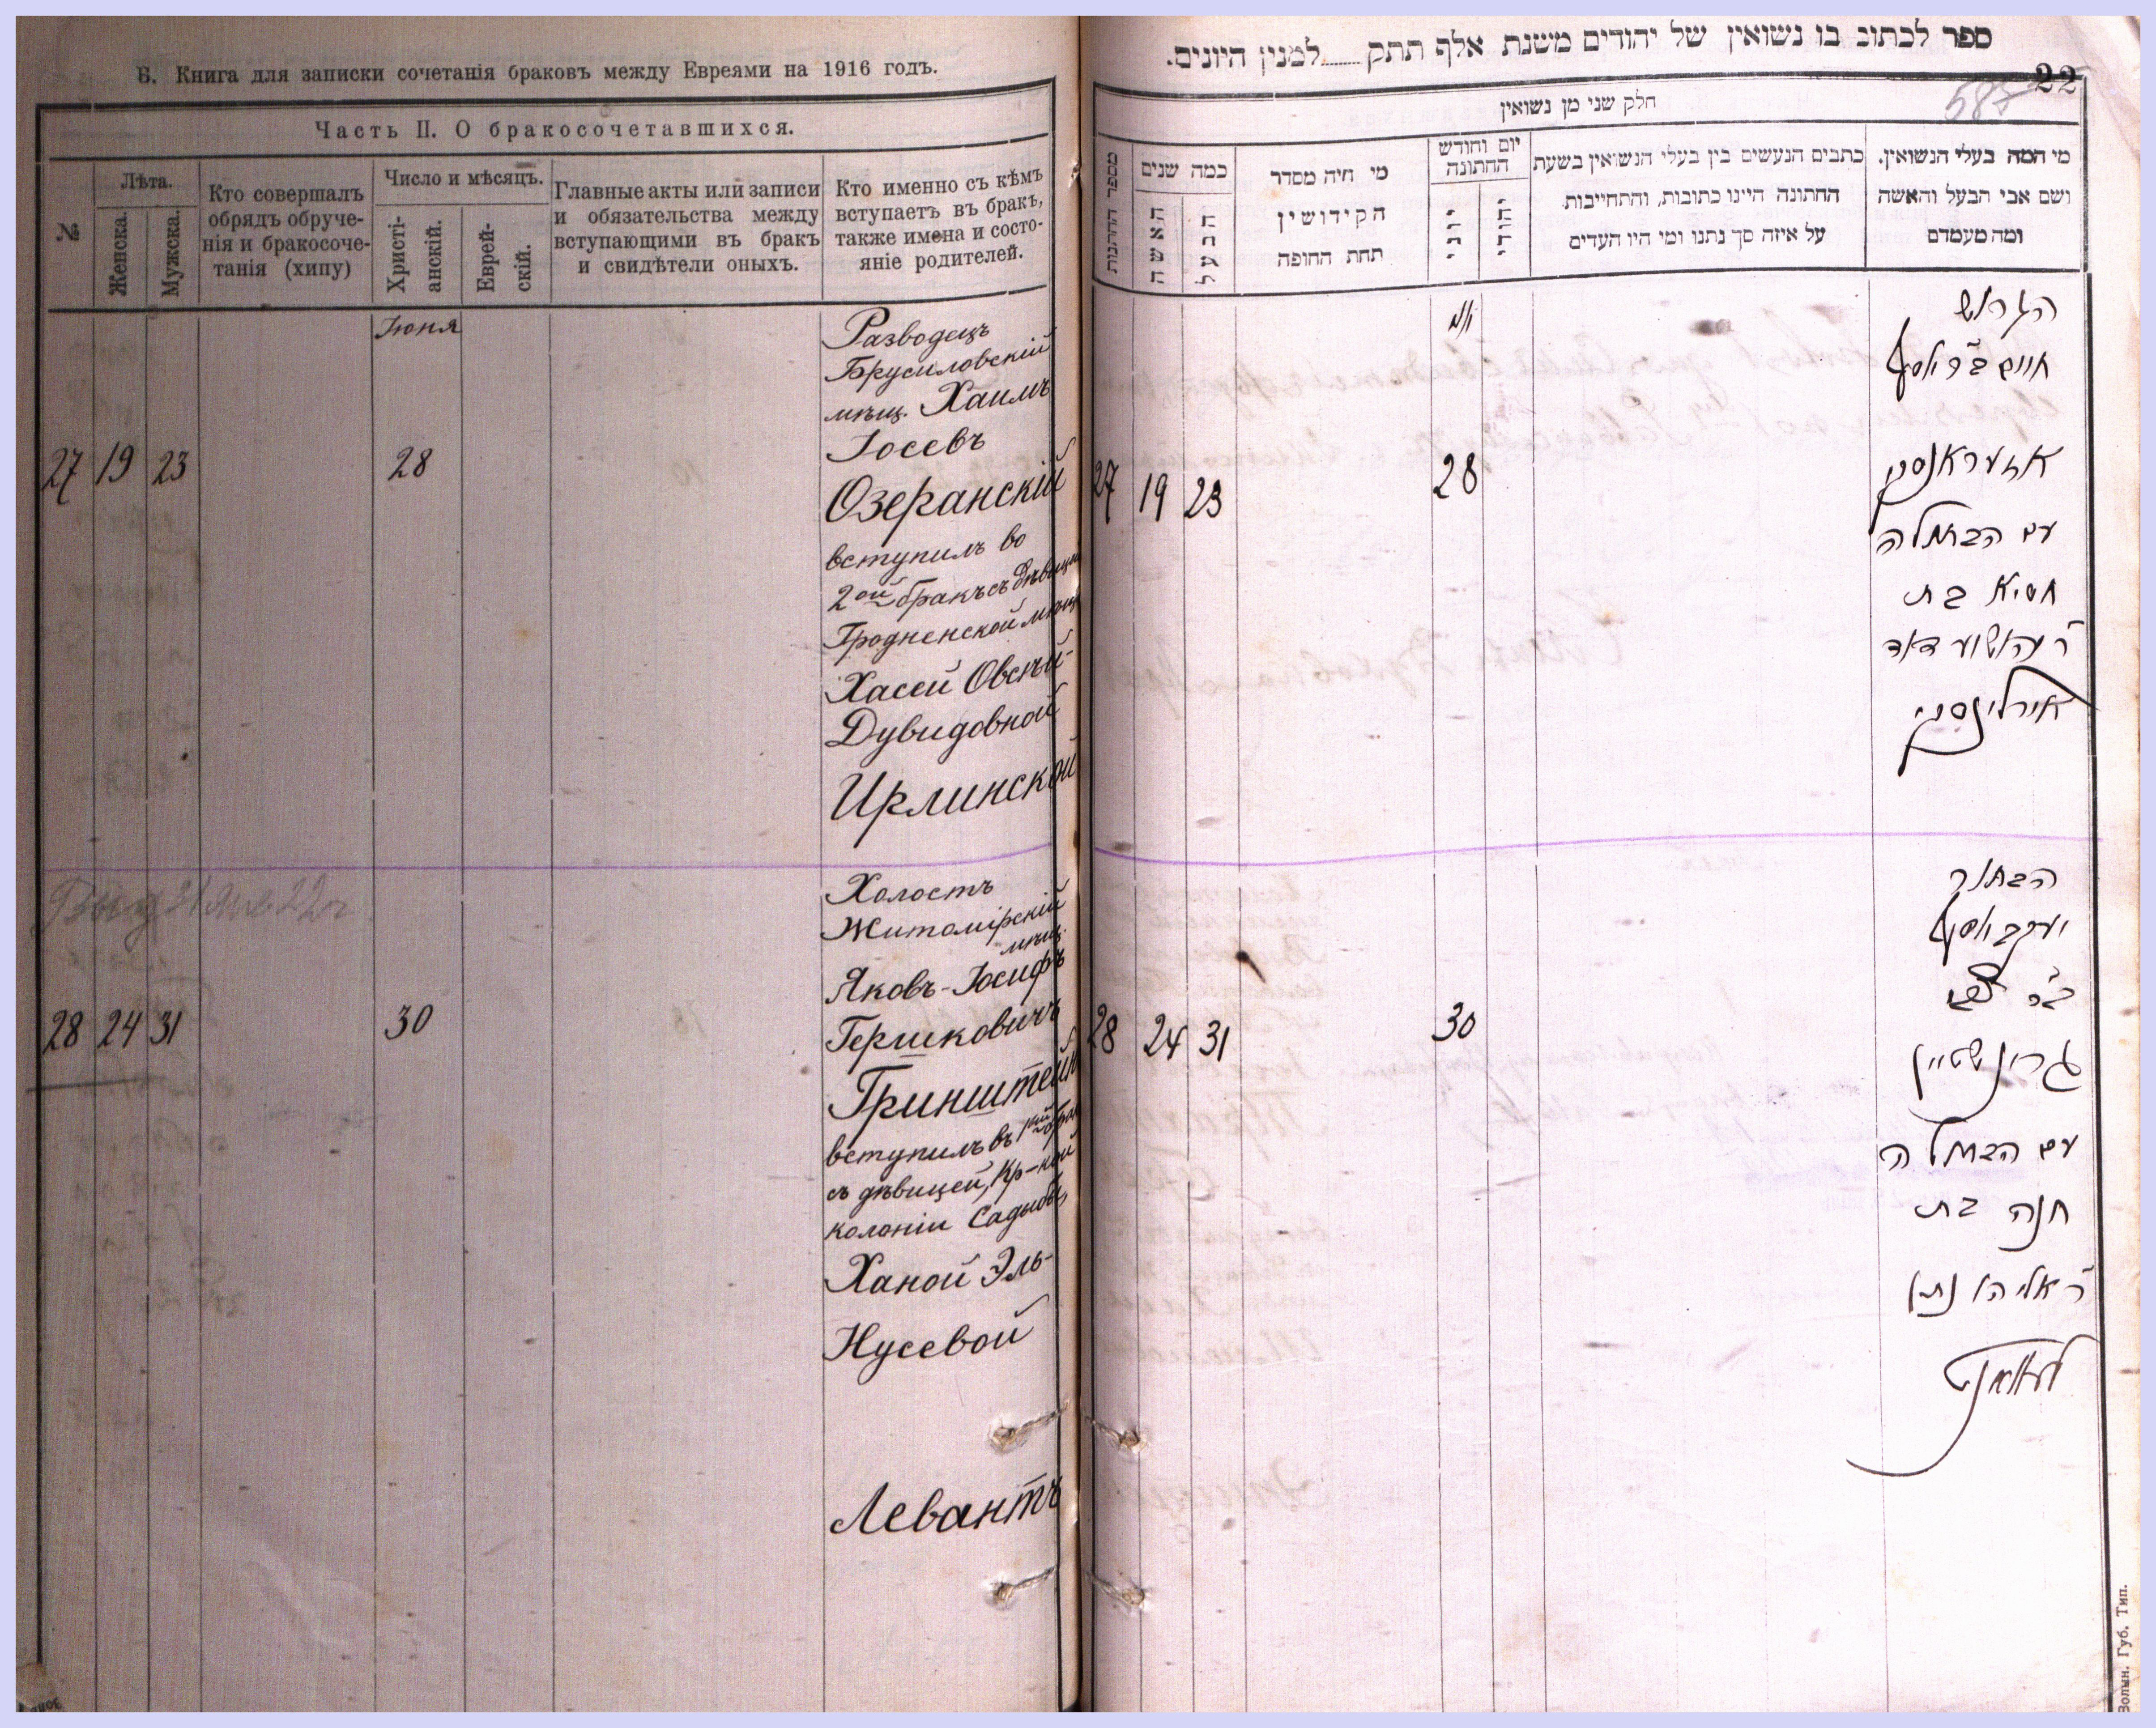 Б. Книга для записки сочетанія браковъ между Евреями на 1916 годъ.
Часть II. О бракосочетавшихся.
№
Лѣта.
Женска.
Мужска.
Кто совершалъ
обрядъ обруче-
нія и бракосоче-
танія (хипу)
Число и мѣсяцъ.
Христі-
анскій.
Еврей-
скій.
Главные акты или записи
и обязательства между
вступающими въ бракъ
и свидѣтели оныхъ.
Кто именно съ кѣмъ
вступаетъ въ бракъ,
также имена и состо-
яніе родителей.
Іюня
27 19 23 28
Разводецъ
Брусиловскій
мѣщ. Хаимъ
Іосевъ
Озеранскій
вступилъ во
2ой бракъ съ дѣвицей
Гродненской мѣщ
Хасей Овсѣй-
Дувидовной
Ирлинской
28 24 31 30
Холостъ
Житомірскій
мѣщ.
Яковъ-Іосифъ
Гершковичъ
Гринштейн
вступилъ въ 1ый брак
съ дѣвицей, Кр-кой
колоніи Садыбы,
Ханой Эль-
Нусевой
Левантъ
ספר לכתוב בו נשואין של יהודים משנת אלף תתק למנין היונים.
22
587
חלק שני מן נשואין
מספר החתונות
כמה שנים
האשה
הבעל
מי היה מסדר
הקידושין
תחת החופה
יום וחודש
החתונה
יוני
יהודי
כתבים הנעשים בין בעלי הנשואין בשעת
החתונה היינו כתובות, והתחייבות
על איזה סך נתנו ומי היו העדים
מי המה בעלי הנשואין.
ושם אבי הבעל והאשה
ומה מעמדם
27 19 23 28
הגרוש
חיים ב״ר יוסף
אזעראנסקי
עם הבתולה
חסיא בת
ר׳ יהושוע דוד
אירלינסקי
28 24 31 30
הבחור
יעקב יוסף
ב״ר צבי
גרינשטיין
עם הבתולה
חנה בת
ר׳ אליהו נתן
לעוואנט
Волын. Губ. Тип.